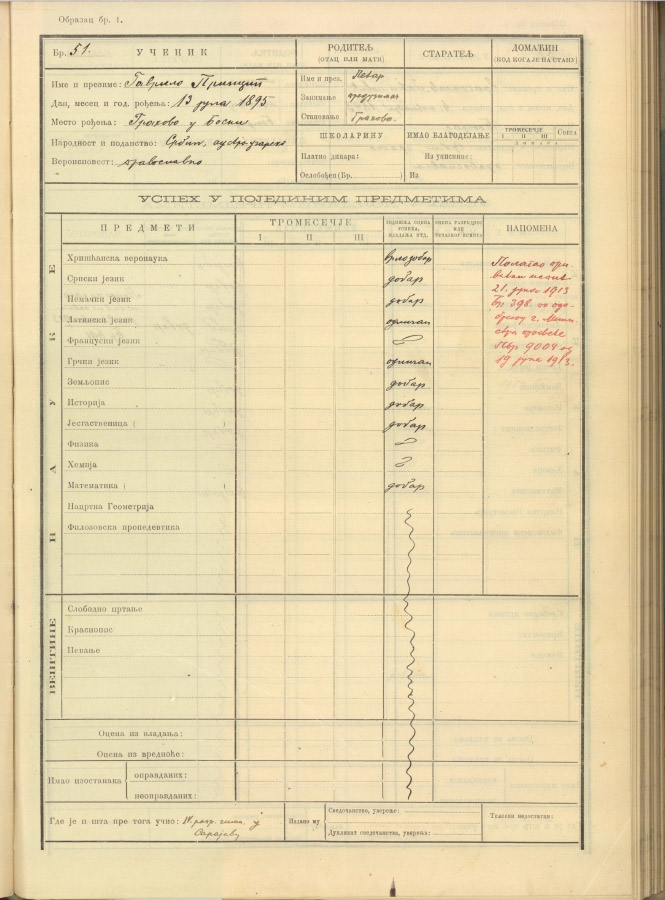 Образац бр. 1.
Бр. 51. УЧЕНИК
Име и презиме: Гаврило Принцип
Дан, месец и год. рођења: 13 јула 1895
Место рођења: Грахово у Босни
Народност и поданство: Србин, аустро-угарско
Вероисповест: православно
РОДИТЕЉ
(ОТАЦ ИЛИ МАТИ)
Име и през. Петар
Занимање предузимач
Становање Грахово.
СТАРАТЕЉ
ДОМАЋИН
(КОД КОГА ЈЕ НА СТАНУ)
ШКОЛАРИНУ
Платио динара:
Ослобођен (Бр. )
ИМАО БЛАГОДЕЈАЊЕ
Из
ТРОМЕСЕЧЈЕ Свега
I II III
ДИНАРА
УСПЕХ У ПОЈЕДИНИМ ПРЕДМЕТИМА
ПРЕДМЕТИ
ТРОМЕСЕЧЈЕ
I II III
ГОДИШЊА ОЦЕНА
УСПЕХА,
ВЛАДАЊА ИТД.
ОЦЕНА РАЗРЕДНОГ
ИЛИ
ИСПИТА
НАПОМЕНА
НАУКЕ
Хришћанска веронаука врлодобар
Српски језик добар
Немачки језик добар
Латински језик одличан
Француски језик
Грчки језик одличан
Земљопис добар
Историја добар
Јестаственица ( ) добар
Физика
Хемија
Математика ( ) добар
Нацртна Геометрија
Филозовска пропедевтика
Полагао при-
ватан испит
21. јуна 1913
Бр 398. по одо-
брењу г. Мини-
стра просвете
ПБр 9004 од
19 јуна 1913.
ВЕШТИНЕ
Слободно цртање
Краснопис
Певање
Оцена из владања:
Оцена из вредноће:
Имао изостанака
оправданих:
неоправданих:
Где је и шта пре тога учио: IV. разр. гимн. у
Сарајеву
Издано му
Сведочанство, уверење:
Дупликат сведочанства, уверења:
Телесни недостатци: